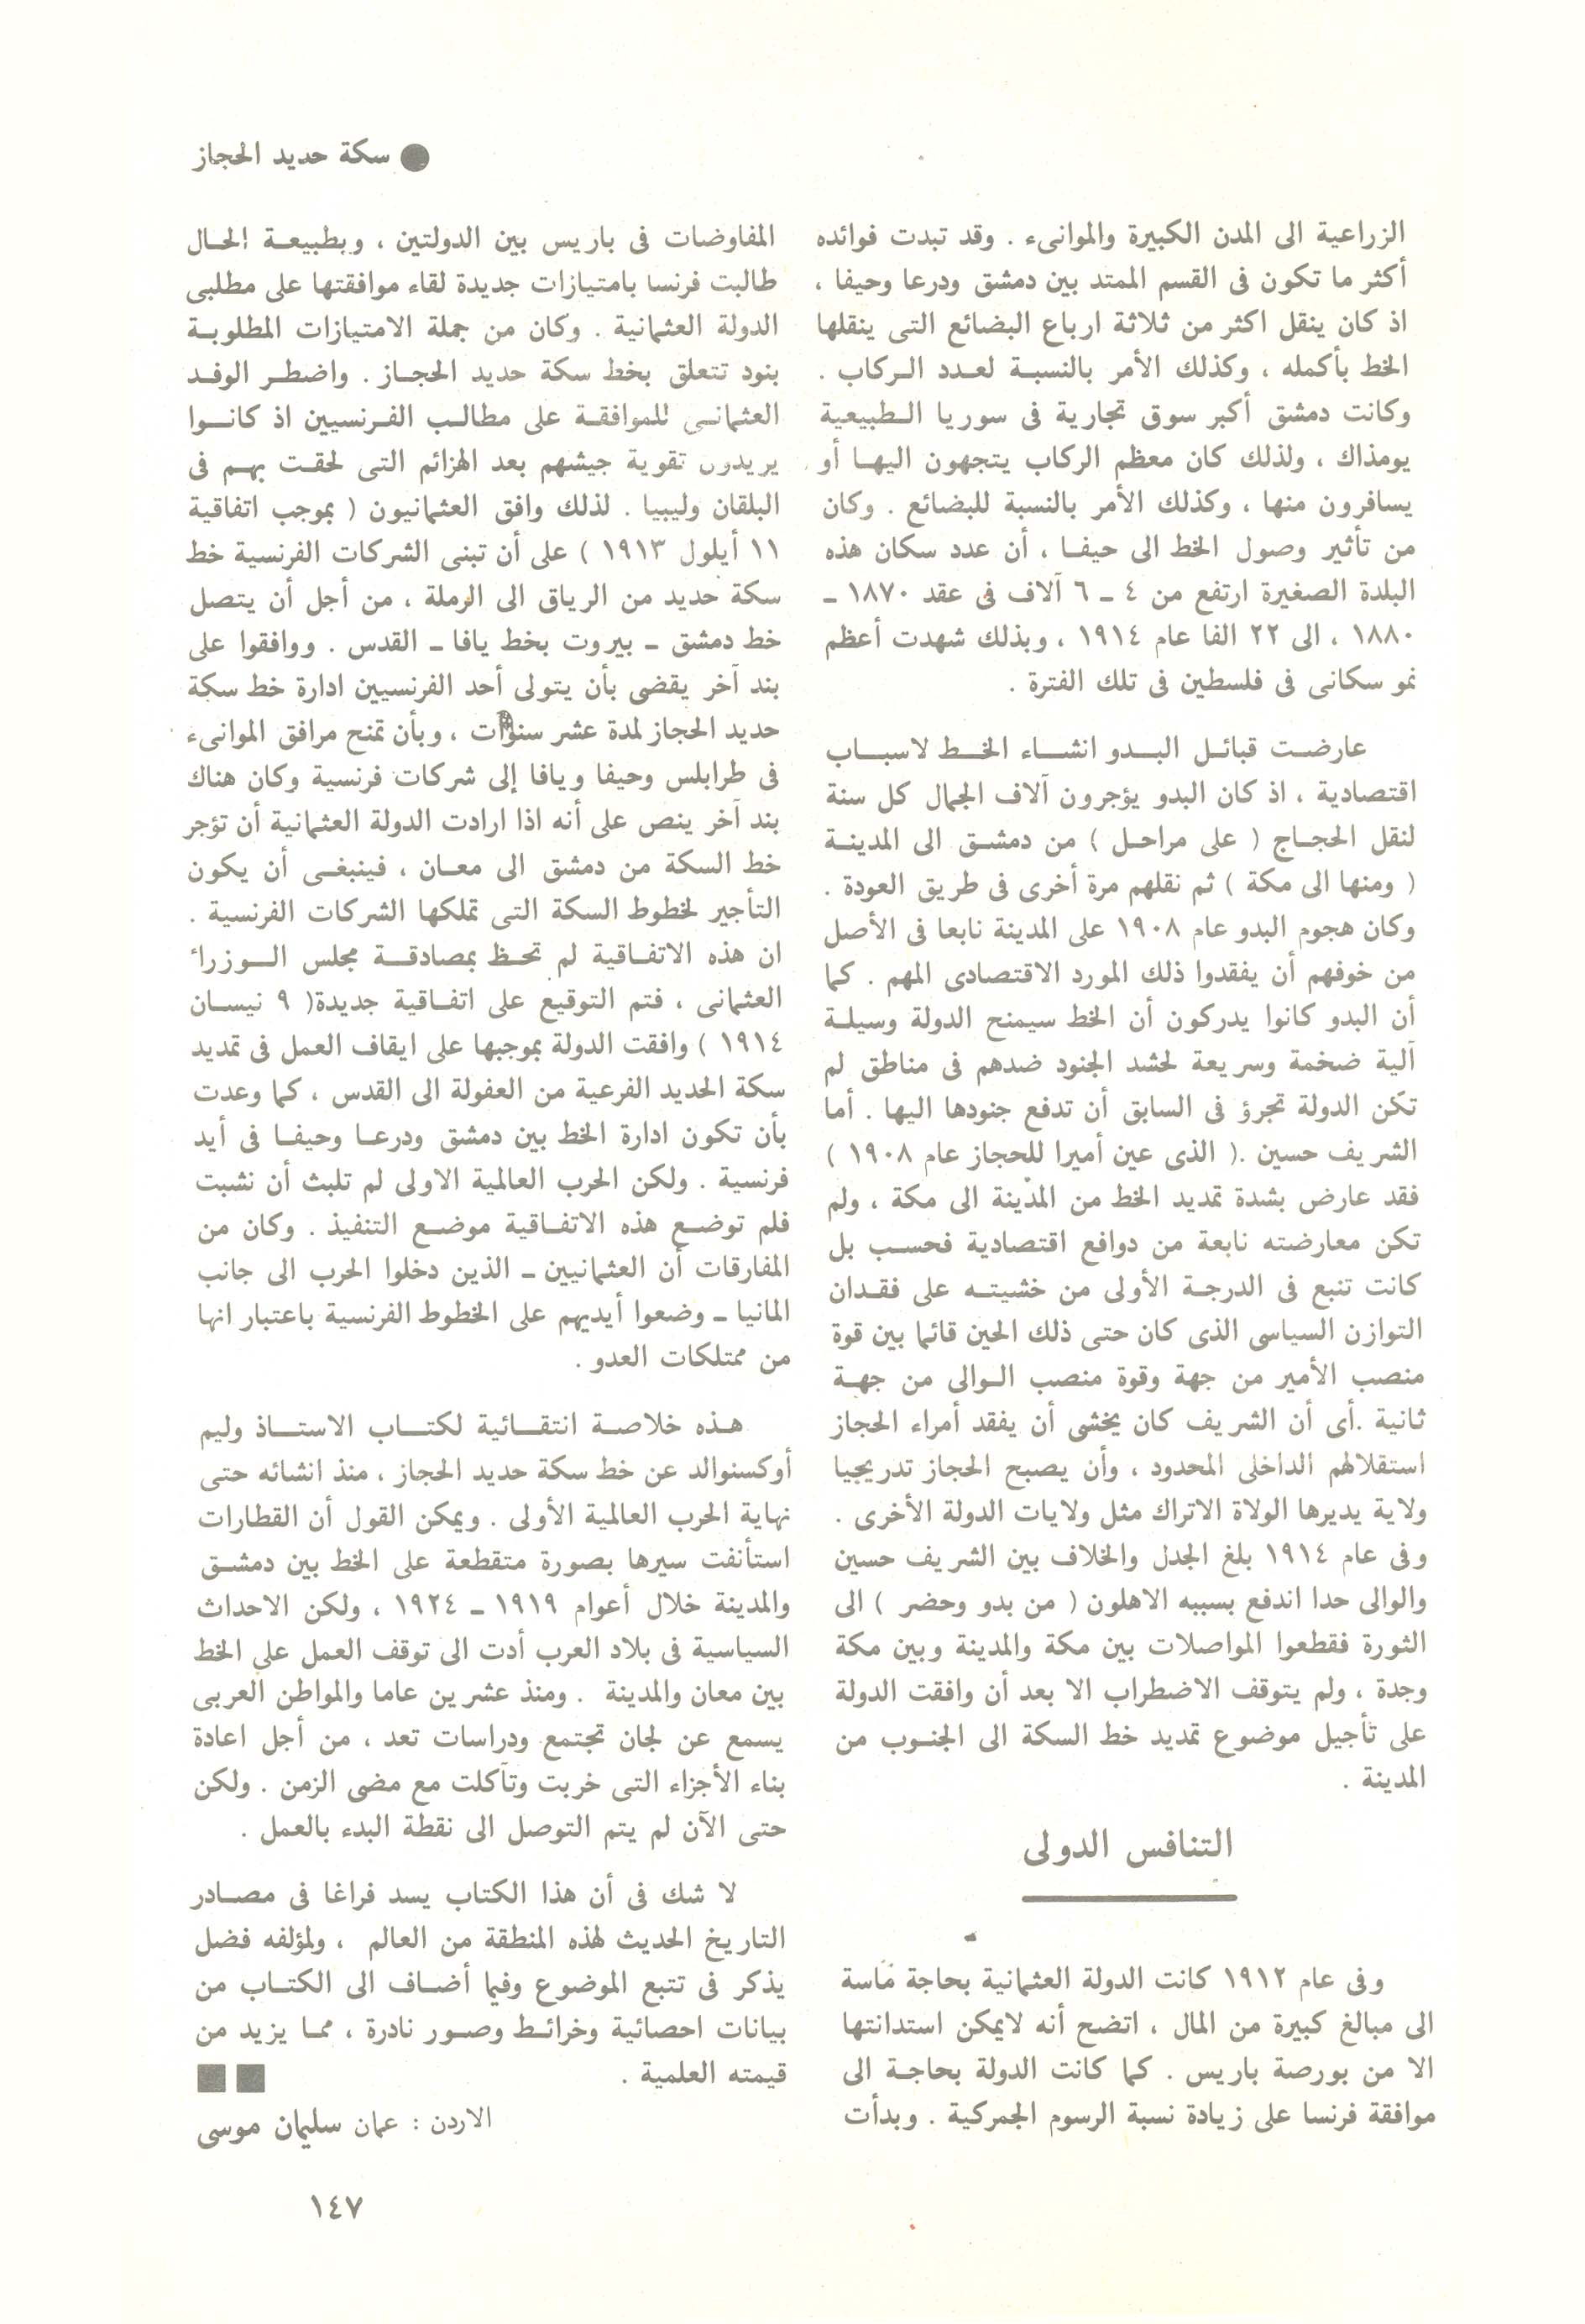 ● سكة حديد الحجاز
الزراعية الى المدن الكبيرة والموانىء . وقد تبدت فوائده
أكثر ما تكون فى القسم الممتد بين دمشق ودرعا وحيفا ،
اذ كان ينقل اكثر من ثلاثة ارباع البضائع التى ينقلها
الخط بأكمله ، وكذلك الأمر بالنسبة لعدد الركاب .
وكانت دمشق أكبر سوق تجارية فى سوريا الطبيعية
يومذاك ، ولذلك كان معظم الركاب يتجهون اليها أو
يسافرون منها ، وكذلك الأمر بالنسبة للبضائع . وكان
من تأثير وصول الخط الى حيفا ، أن عدد سكان هذه
البلدة الصغيرة ارتفع من ٤ ـ ٦ آلاف فى عقد ١٨٧٠ ـ
١٨٨٠ ، الى ٢٢ الفا عام ١٩١٤ ، وبذلك شهدت أعظم
نمو سكانى فى فلسطين فى تلك الفترة .
عارضت قبائل البدو انشاء الخط لاسباب
اقتصادية ، اذ كان البدو يؤجرون آلاف الجمال كل سنة
لنقل الحجاج ( على مراحل ) من دمشق الى المدينة
( ومنها الى مكة ) ثم نقلهم مرة أخرى فى طريق العودة .
وكان هجوم البدو عام ١٩٠٨ على المدينة نابعا فى الأصل
من خوفهم أن يفقدوا ذلك المورد الاقتصادى المهم . كما
أن البدو كانوا يدركون أن الخط سيمنح الدولة وسيلة
آلية ضخمة وسريعة لحشد الجنود ضدهم فى مناطق لم
تكن الدولة تجرؤ فى السابق أن تدفع جنودها اليها . أما
الشريف حسين .( الذى عين أميرا للحجاز عام ١٩٠٨ )
فقد عارض بشدة تمديد الخط من المدينة الى مكة ، ولم
تكن معارضته نابعة من دوافع اقتصادية فحسب بل
كانت تنبع فى الدرجة الأولى من خشيته على فقدان
التوازن السياسى الذى كان حتى ذلك الحين قائما بين قوة
منصب الأمير من جهة وقوة منصب الوالى من جهة
ثانية .أى أن الشريف كان يخشى أن يفقد أمراء الحجاز
استقلالهم الداخلى المحدود ، وأن يصبح الحجاز تدريجيا
ولاية يديرها الولاة الاتراك مثل ولايات الدولة الأخرى .
وفى عام ١٩١٤ بلغ الجدل والخلاف بين الشريف حسين
والوالى حدا اندفع بسببه الاهلون ( من بدو وحضر ) الى
الثورة فقطعوا المواصلات بين مكة والمدينة وبين مكة
وجدة ، ولم يتوقف الاضطراب الا بعد أن وافقت الدولة
على تأجيل موضوع تمديد خط السكة الى الجنوب من
المدينة .
التنافس الدولى
وفى عام ١٩١٢ كانت الدولة العثمانية بحاجة ماسة
الى مبالغ كبيرة من المال ، اتضح أنه لايمكن استدانتها
الا من بورصة باريس . كما كانت الدولة بحاجة الى
موافقة فرنسا على زيادة نسبة الرسوم الجمركية . وبدأت
المفاوضات فى باريس بين الدولتين ، وبطبيعة الحال
طالبت فرنسا بامتيازات جديدة لقاء موافقتها على مطلبى
الدولة العثمانية . وكان من جملة الامتيازات المطلوبة
بنود تتعلق بخط سكة حديد الحجاز . واضطر الوفد
العثمانى للموافقة على مطالب الفرنسيين اذ كانوا
يريدون تقوية جيشهم بعد الهزائم التى لحقت بهم فى
البلقان وليبيا . لذلك وافق العثمانيون ( بموجب اتفاقية
١١ أيلول ١٩١٣ ) على أن تبنى الشركات الفرنسية خط
سكة حديد من الرياق الى الرملة ، من أجل أن يتصل
خط دمشق ـ بيروت بخط يافا ـ القدس . ووافقوا على
بند آخر يقضى بأن يتولى أحد الفرنسيين ادارة خط سكة
حديد الحجاز لمدة عشر سنوات ، وبأن تمنح مرافق الموانىء
فى طرابلس وحيفا ويافا إلى شركات فرنسية وكان هناك
بند آخر ينص على أنه اذا ارادت الدولة العثمانية أن تؤجر
خط السكة من دمشق الى معان ، فينبغى أن يكون
التأجير لخطوط السكة التى تملكها الشركات الفرنسية .
ان هذه الاتفاقية لم تحظ بمصادقة مجلس الوزراء
العثمانى ، فتم التوقيع على اتفاقية جديدة( ٩ نيسان
١٩١٤ ) وافقت الدولة بموجبها على ايقاف العمل فى تمديد
سكة الحديد الفرعية من العفولة الى القدس ، كما وعدت
بأن تكون ادارة الخط بين دمشق ودرعا وحيفا فى أيد
فرنسية . ولكن الحرب العالمية الاولى لم تلبث أن نشبت
فلم توضع هذه الاتفاقية موضع التنفيذ . وكان من
المفارقات أن العثمانيين ـ الذين دخلوا الحرب الى جانب
المانيا ـ وضعوا أيديهم على الخطوط الفرنسية باعتبار انها
من ممتلكات العدو .
هذه خلاصة انتقائية لكتاب الاستاذ وليم
أوكسنوالد عن خط سكة حديد الحجاز ، منذ انشائه حتى
نهاية الحرب العالمية الأولى . ويمكن القول أن القطارات
استأنفت سيرها بصورة متقطعة على الخط بين دمشق
والمدينة خلال أعوام ١٩١٩ ـ ١٩٢٤ ، ولكن الاحداث
السياسية فى بلاد العرب أدت الى توقف العمل على الخط
بين معان والمدينة . ومنذ عشرين عاما والمواطن العربى
يسمع عن لجان تجتمع ودراسات تعد ، من أجل اعادة
بناء الأجزاء التى خربت وتآكلت مع مضى الزمن . ولكن
حتى الآن لم يتم التوصل الى نقطة البدء بالعمل .
لا شك فى أن هذا الكتاب يسد فراغا فى مصادر
التاريخ الحديث لهذه المنطقة من العالم ، ولمؤلفه فضل
يذكر فى تتبع الموضوع وفيما أضاف الى الكتاب من
بيانات احصائية وخرائط وصور نادرة ، مما يزيد من
قيمته العلمية .
الاردن : عمان سليمان موسى
١٤٧